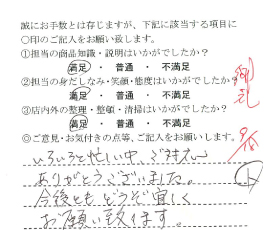 誠にお手数とは存じますが、下記に該当する項目に
○印のご記入をお願い致します。
①担当の商品知識・説明はいかがでしたか?
満足 ・ 普通 ・ 不満足
②担当の身だしなみ・笑顔・態度はいかがでしたか?
満足 ・ 普通 ・ 不満足
③店内外の整理・整頓・清掃はいかがでしたか?
満足 ・ 普通 ・ 不満足
◎ご意見・お気付きの点等、ご記入をお願いします。
いろいろと忙しい中、ご対応
ありがとうございました。
今後ともどうぞ宜しく
お願い致します。